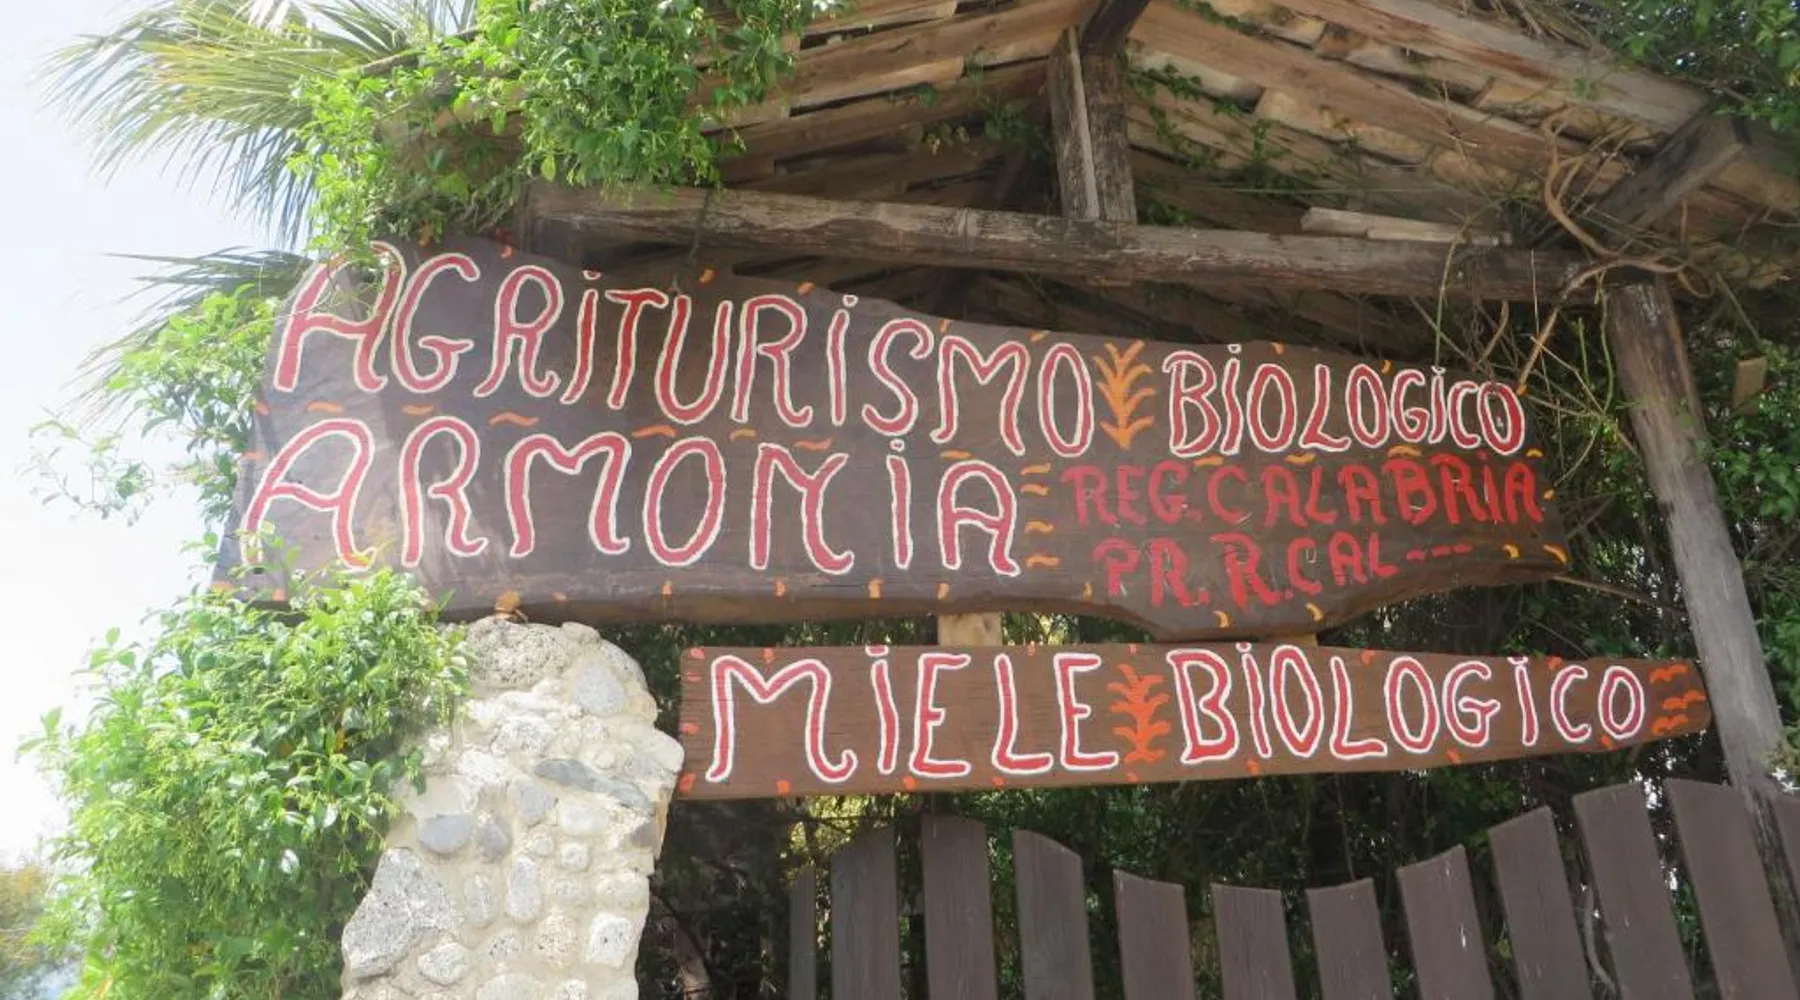 AGRiTURiSMO BiOLOGiCO
ARMONiA REG. CALABRiA
PR. R.CAL---
MiELE BiOLOGiCO